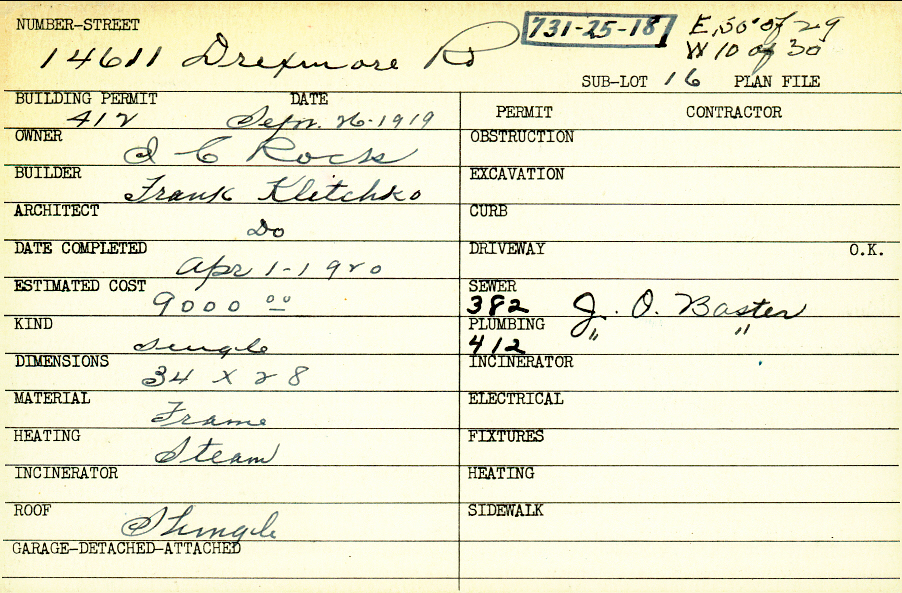 NUMBER-STREET
731-25-18
E, 50' of 29
14611 Drexmore Rd
W 10 of 30
SUB-LOT 16 PLAN FILE
BUILDING PERMIT DATE
412 Sept. 26-1919
PERMIT CONTRACTOR
OWNER
OBSTRUCTION
BUILDER
EXCAVATION
Frank Klitchko
ARCHITECT
CURB
Do
DATE COMPLETED
DRIVEWAY O.K.
Apr 1-1920
ESTIMATED COST
SEWER
9000 00
382 J. O. Baster
KIND
PLUMBING
Single
412 " "
DIMENSIONS
INCINERATOR
34 X 28
MATERIAL
ELECTRICAL
Frame
HEATING
FIXTURES
Steam
INCINERATOR
HEATING
ROOF
SIDEWALK
Shingle
GARAGE-DETACHED-ATTACHED